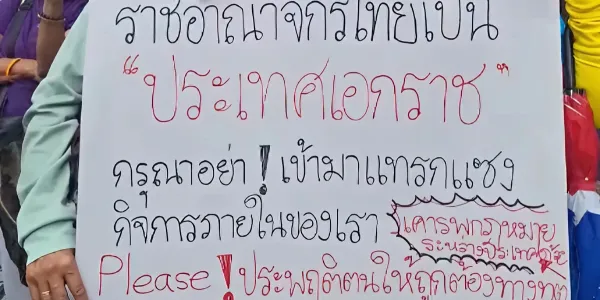 ราชอาณาจักรไทยเป็น
"ประเทศเอกราช"
กรุณาอย่า! เข้ามาแทรกแซง
กิจการภายในของเรา เคารพกฎหมาย
ระหว่างประเทศด้วย
Please! ประพฤติตนให้ถูกต้องทาง